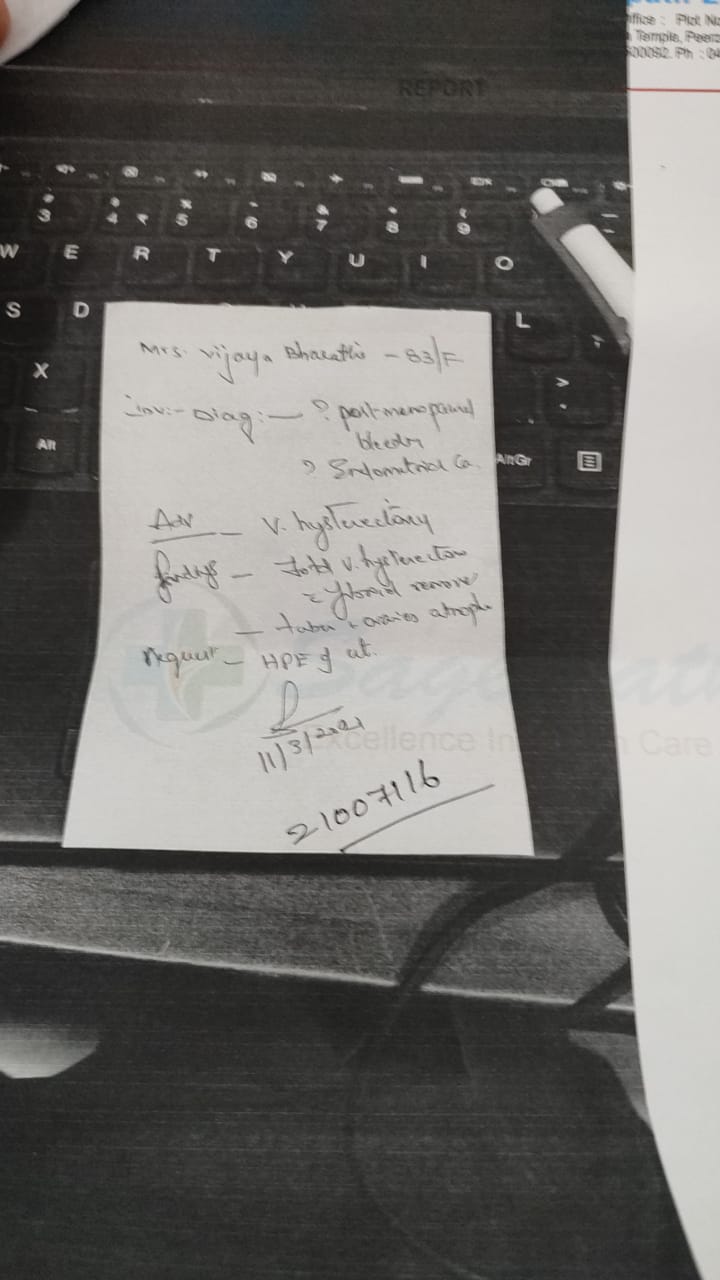 ffice : Plot No
Temple, Peerz
500092. Ph : 04
REPORT
3 4 ₹ 5 6 7 8 9
W E R T Y U I O
S D L
X
Alt AltGr
Mrs. Vijaya Bharathi - 83/F
Diag :- ? post-menopausal
bleeder
? Endometrial Ca.
Adv - V. hysterectomy
findings - Total V. hysterectom
fibroid remove
- tubes & ovaries atroph
Request - HPE of ut.
11/3/2021
Excellence In Care
21007116